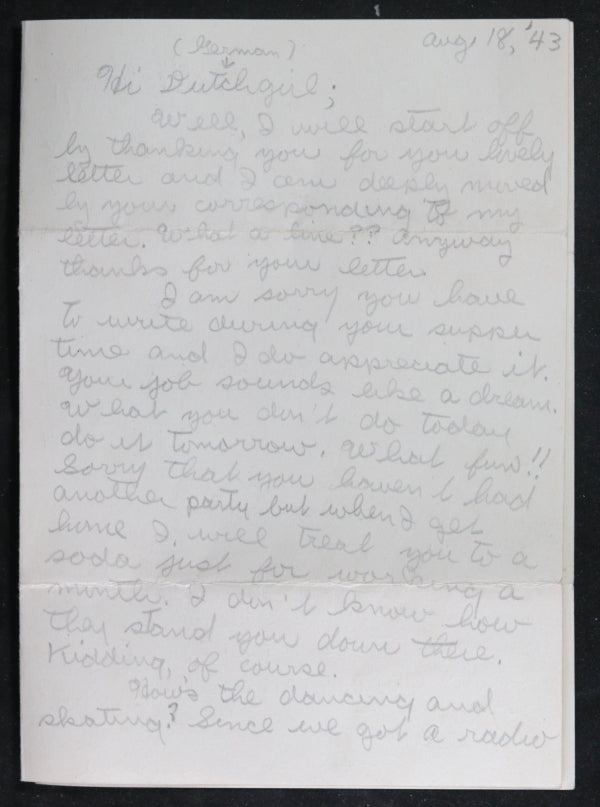 Aug 18, '43
(German)
Hi Dutchgirl;
Well, I will start off
by thanking you for you lovely
letter and I am deeply moved
by your corresponding to my
letter. What a line?? Anyway
thanks for your letter
I am sorry you have
to write during your supper
time and I do appreciate it.
Your job sounds like a dream.
What you don't do today
do it tomorrow. What fun!!
Sorry that you haven't had
another party but when I get
home I will treat you to a
soda just for working a
month. I don't know how
they stand you down there.
Kidding, of course.
How's the dancing and
skating? Since we got a radio